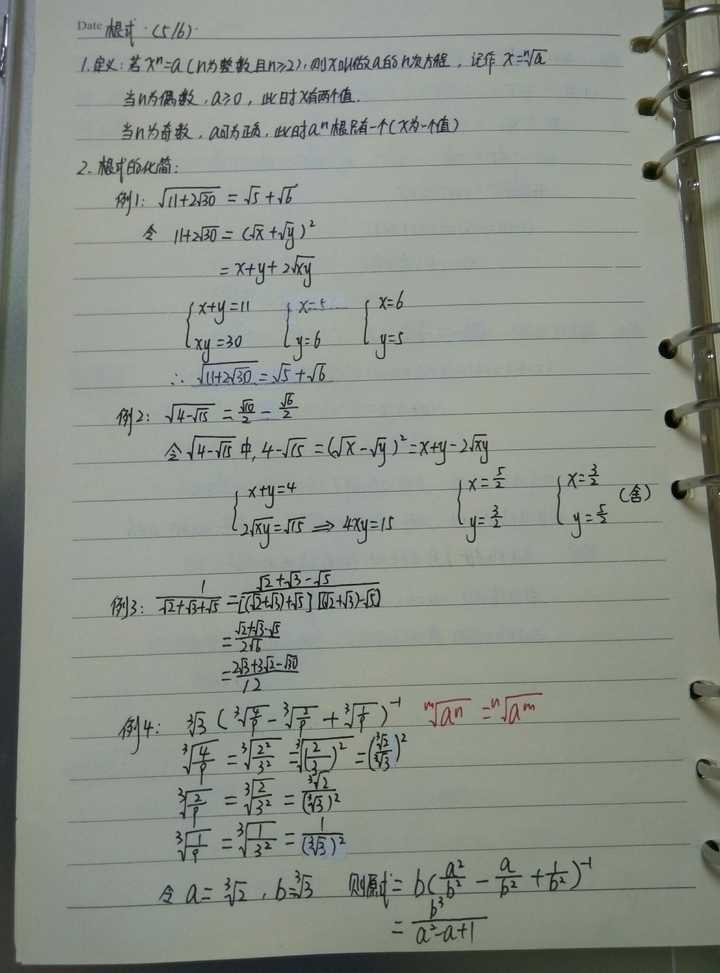 Date 根式·(5/6)·
1.定义:若xⁿ=a(n为整数且n≥2),则x叫做a的n次方程,记作 x=ⁿ√a
当n为偶数,a≥0,此时x有两个值.
当n为奇数,a可为正负,此时aⁿ根只有一个(x为一个值)
2.根式的化简:
例1: √(11+2√30) = √5+√6
令 11+2√30 = (√x+√y)²
= x+y+2√xy
{x+y=11 {x=5 {x=6
{xy=30 {y=6 {y=5
∴ √(11+2√30) = √5+√6
例2: √(4-√15) = √10/2 - √6/2
令√(4-√15)中,4-√15 = (√x-√y)² = x+y-2√xy
{x+y=4 {x=5/2 {x=3/2 (舍)
{2√xy=√15 ⇒ 4xy=15 {y=3/2 {y=5/2
例3: 1/(√2+√3+√5) = (√2+√3-√5)/([(√2+√3)+√5][(√2+√3)-√5])
= (√2+√3-√5)/(2√6)
= (2√3+3√2-√30)/12
例4: ³√3(³√(4/9)-³√(2/9)+³√(1/9))⁻¹ ᵐ√aⁿ = ⁿ√aᵐ
³√(4/9) = ³√(2²/3²) = ³√(2/3)² = (³√2/³√3)²
³√(2/9) = ³√(2/3²) = ³√2/(³√3)²
³√(1/9) = ³√(1/3²) = 1/(³√3)²
令 a=³√2, b=³√3 则原式= b(a²/b² - a/b² + 1/b²)⁻¹
= b³/(a²-a+1)